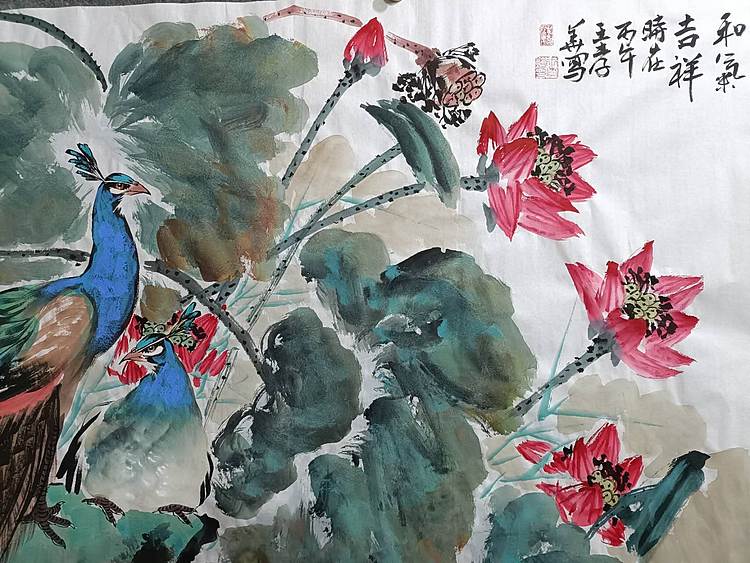 和氣
吉祥
時在
丙午
王孝
華寫